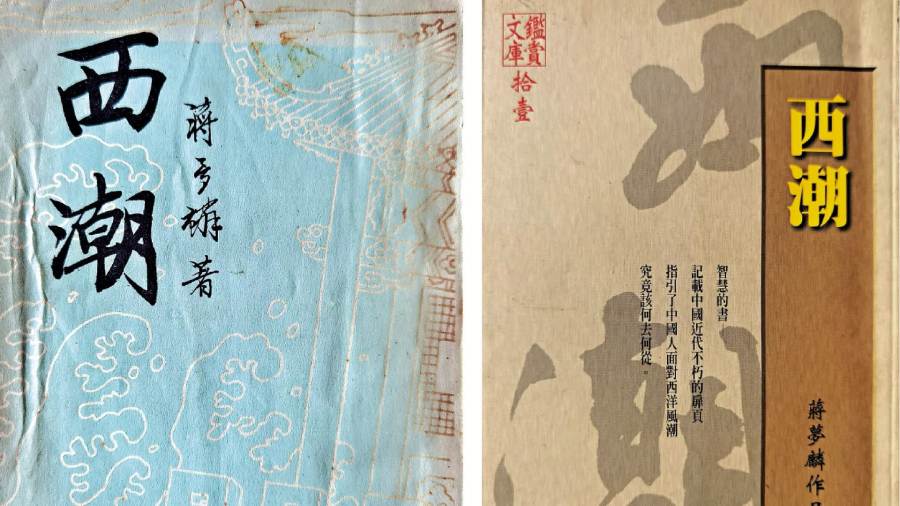 西潮
蔣夢麟 著
鑑賞文庫
拾壹
西潮
智慧的書—
記載中國近代不朽的扉頁
指引了中國人面對西洋風潮
究竟該何去何從。
蔣夢麟作